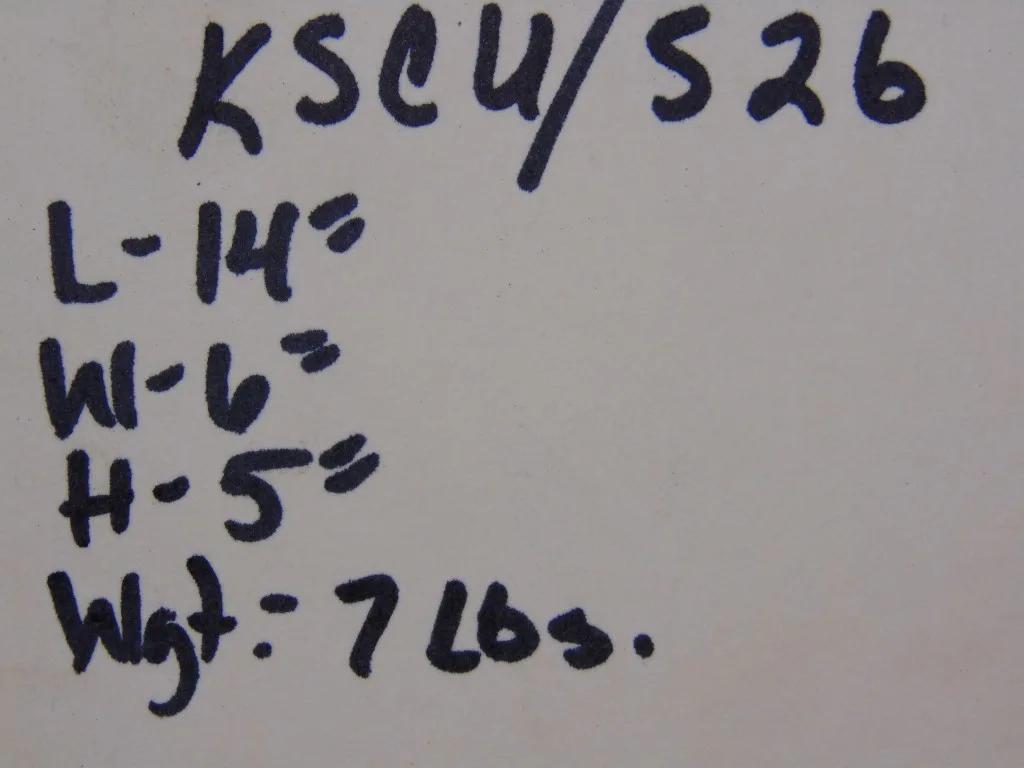 KSCU/S26
L-14"
W-6"
H-5"
Wgt:- 7 Lbs.